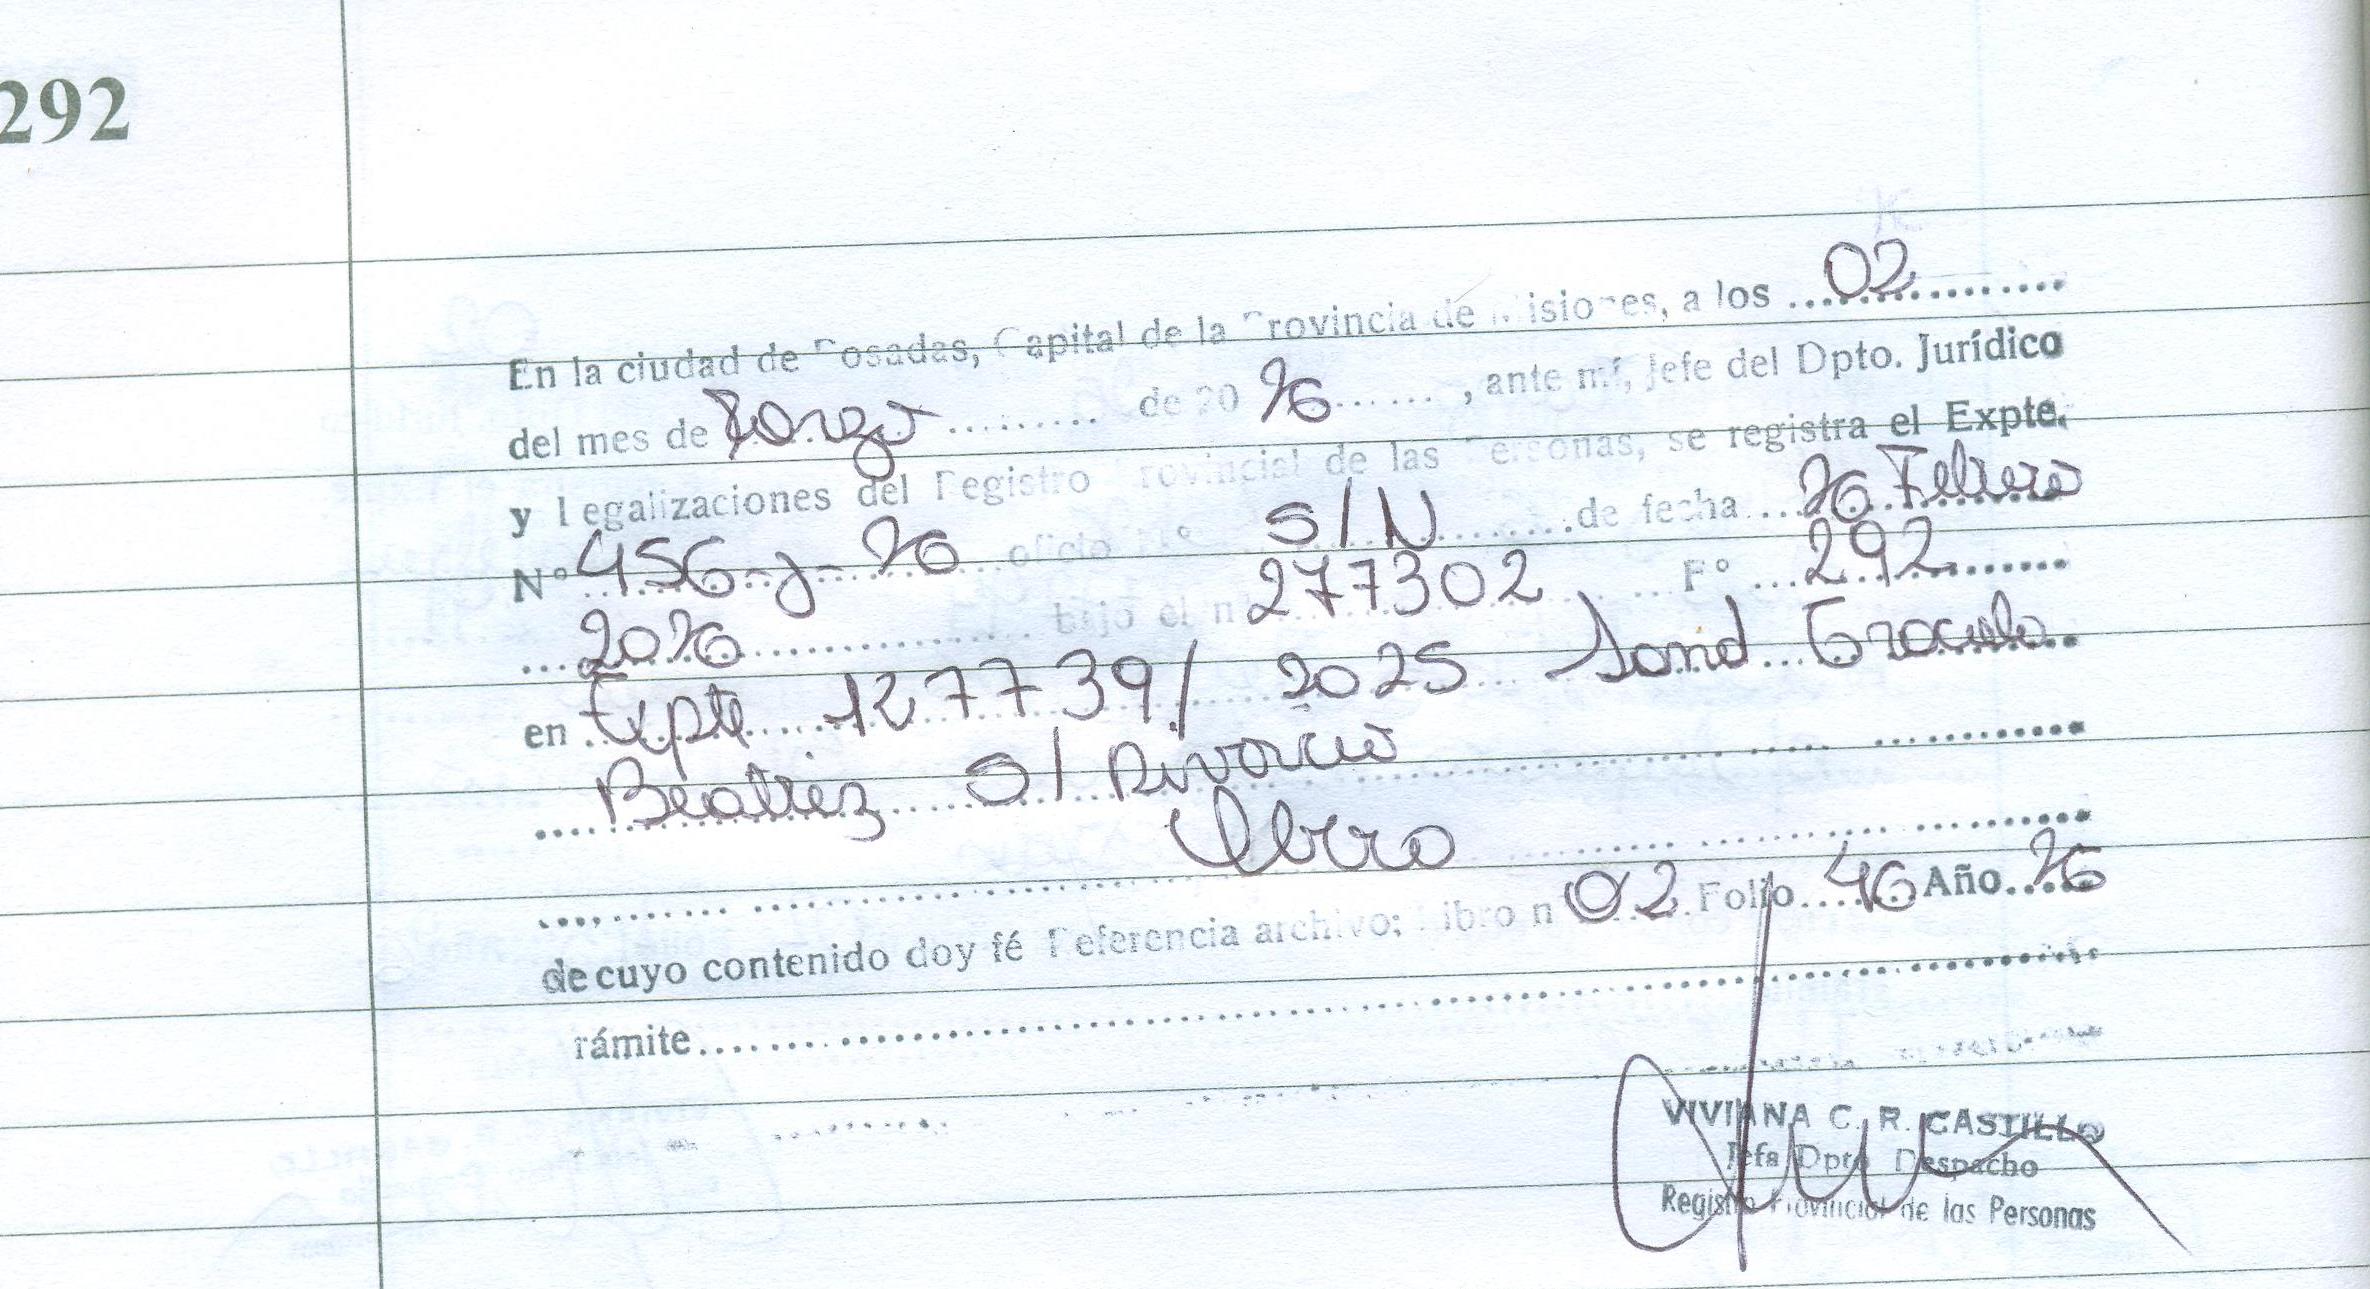 292
En la ciudad de Posadas, Capital de la Provincia de Misiones, a los 02
del mes de Marzo de 20 26, ante mí, Jefe del Dpto. Jurídico
y Legalizaciones del Registro Provincial de las Personas, se registra el Expte.
N° 456-J-26 oficio N° S/N de fecha 26 Febrero
2026 bajo el n° 277302 F° 292
en Expte 127739/2025 Sand Graciela
Beatriz S/ Divorcio
Obera
de cuyo contenido doy fé Referencia archivo; Libro n 02 Folio 46 Año 26
rámite
VIVIANA C. R. CASTILLO
Jefa Dpto Despacho
Registro Provincial de las Personas